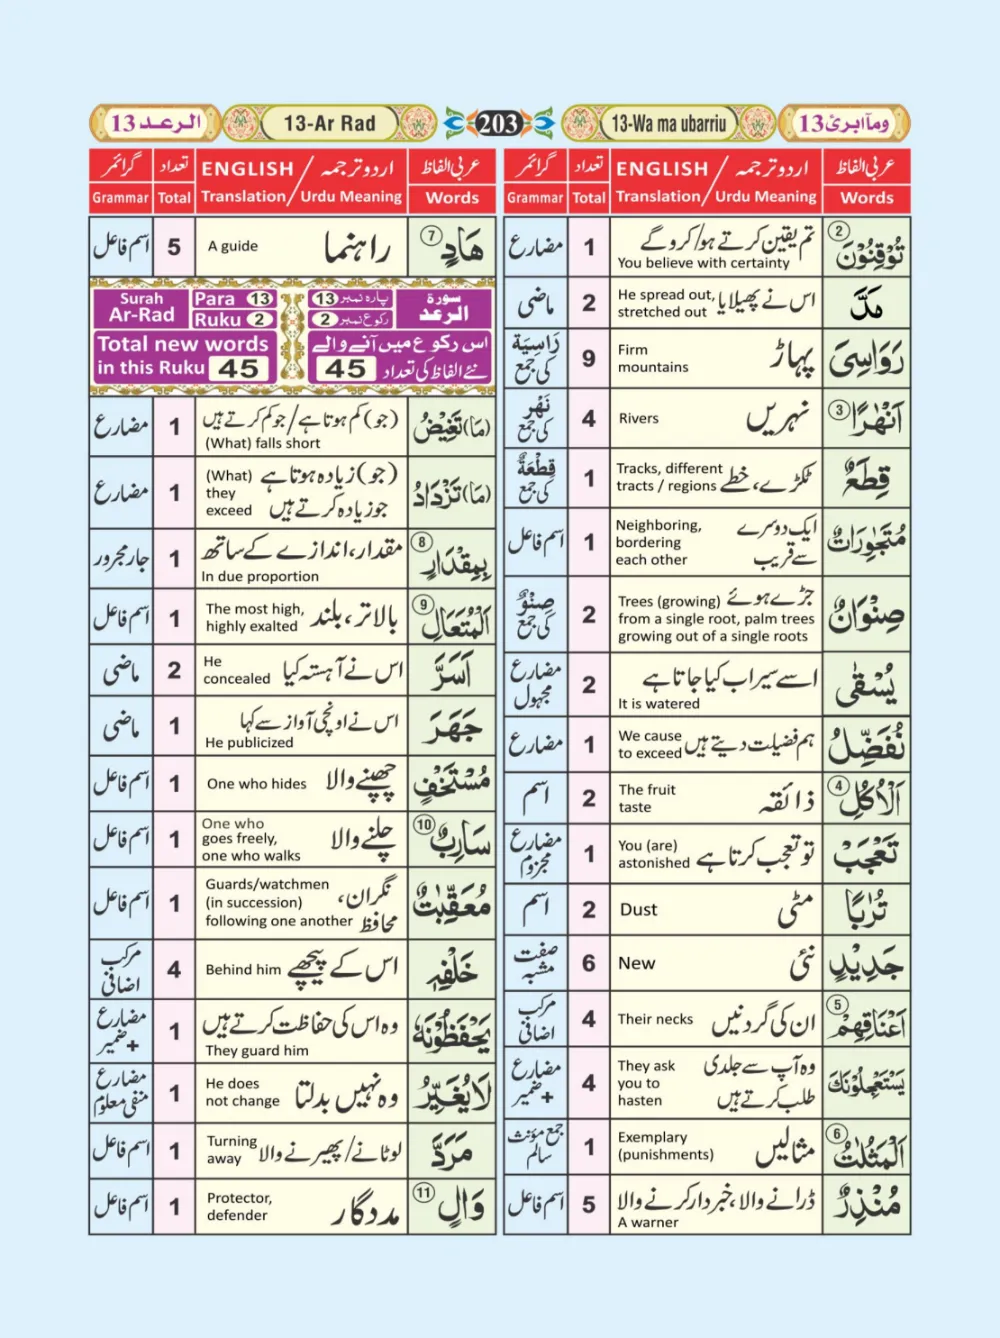 الرعد 13
13-Ar Rad
203
13-Wa ma ubarriu
ومآ ابرئ 13
عربی الفاظ
اردو ترجمہ / ENGLISH
تعداد
گرائمر
Words
Translation / Urdu Meaning
Total
Grammar
② تُوْقِنُوْنَ
تم یقین کرتے ہو/کرو گے
You believe with certainty
1
مضارع
مَدَّ
اس نے پھیلایا
He spread out,
stretched out
2
ماضی
رَوَاسِیَ
پہاڑ
Firm
mountains
9
رَاسِيَة
کی جمع
③ اَنْهٰرًا
نہریں
Rivers
4
نَهْر
کی جمع
قِطَعٌ
ٹکڑے، خطے
Tracks, different
tracts / regions
1
قِطْعَةٌ
کی جمع
مُتَجٰوِرَاتٌ
ایک دوسرے
سے قریب
Neighboring,
bordering
each other
1
اسم فاعل
صِنْوَانٌ
جڑے ہوئے
Trees (growing)
from a single root, palm trees
growing out of a single roots
2
صِنْوٌ
کی جمع
يُسْقٰى
اسے سیراب کیا جاتا ہے
It is watered
2
مضارع
مجہول
نُفَضِّلُ
ہم فضیلت دیتے ہیں
We cause
to exceed
1
مضارع
④ اَلْاُكُلِ
ذائقہ
The fruit
taste
2
اسم
تَعْجَبْ
تو تعجب کرتا ہے
You (are)
astonished
1
مضارع
مجزوم
تُرٰبًا
مٹی
Dust
2
اسم
جَدِيْدٍ
نئی
New
6
صفت
مشبہ
⑤ اَعْنَاقِهِمْ
ان کی گردنیں
Their necks
4
مرکب
اضافی
يَسْتَعْجِلُوْنَكَ
وہ آپ سے جلدی
طلب کرتے ہیں
They ask
you to
hasten
4
مضارع
+ضمیر
⑥ اَلْمَثُلٰتُ
مثالیں
Exemplary
(punishments)
1
جمع مؤنث
سالم
مُنْذِرٌ
ڈرانے والا، خبردار کرنے والا
A warner
5
اسم فاعل
عربی الفاظ
اردو ترجمہ / ENGLISH
تعداد
گرائمر
Words
Translation / Urdu Meaning
Total
Grammar
⑦ هَادٍ
راہنما
A guide
5
اسم فاعل
Surah
Ar-Rad
Para 13
Ruku 2
پارہ نمبر 13
رکوع نمبر 2
سورة
الرعد
Total new words
in this Ruku 45
اس رکوع میں آنے والے
نئے الفاظ کی تعداد 45
(مَا) تَغِيْضُ
(جو) کم ہوتا ہے/جو کم کرتے ہیں
(What) falls short
1
مضارع
(مَا) تَزْدَادُ
(جو) زیادہ ہوتا ہے
جو زیادہ کرتے ہیں
(What)
they
exceed
1
مضارع
⑧ بِمِقْدَارٍ
مقدار، اندازے کے ساتھ
In due proportion
1
جار مجرور
⑨ اَلْمُتَعَالِ
بالاتر، بلند
The most high,
highly exalted
1
اسم فاعل
اَسَرَّ
اس نے آہستہ کیا
He
concealed
2
ماضی
جَهَرَ
اس نے اونچی آواز سے کہا
He publicized
1
ماضی
مُسْتَخْفٍ
چھپنے والا
One who hides
1
اسم فاعل
⑩ سَارِبٌ
چلنے والا
One who
goes freely,
one who walks
1
اسم فاعل
مُعَقِّبٰتٌ
نگران،
محافظ
Guards/watchmen
(in succession)
following one another
1
اسم فاعل
خَلْفِهٖ
اس کے پیچھے
Behind him
4
مرکب
اضافی
يَحْفَظُوْنَهٗ
وہ اس کی حفاظت کرتے ہیں
They guard him
1
مضارع
+ضمیر
لَا يُغَيِّرُ
وہ نہیں بدلتا
He does
not change
1
مضارع
منفی معلوم
مَرَدَّ
لوٹانے/پھیرنے والا
Turning
away
1
اسم فاعل
⑪ وَالٍ
مددگار
Protector,
defender
1
اسم فاعل